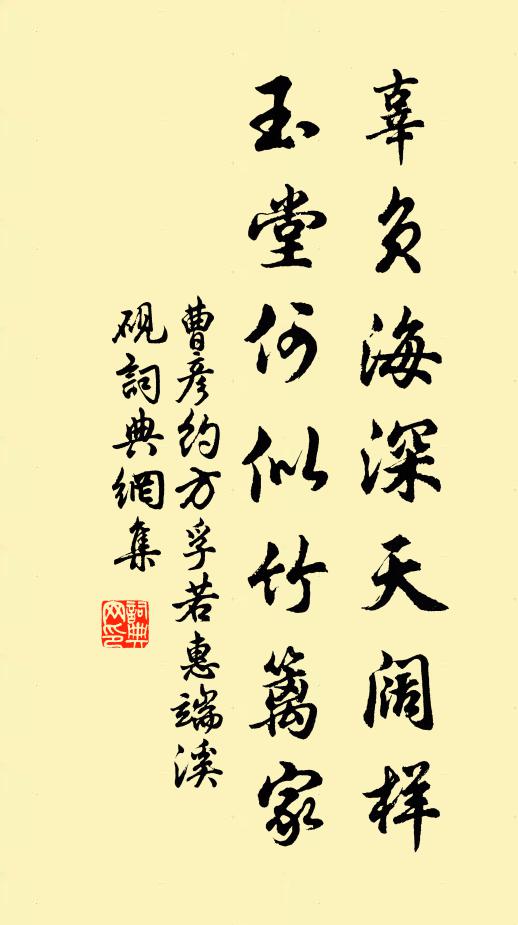 辜负海深天阔样
玉堂何似竹篱家
曹彦约方孚若惠端溪
砚词典网集
词典
网印